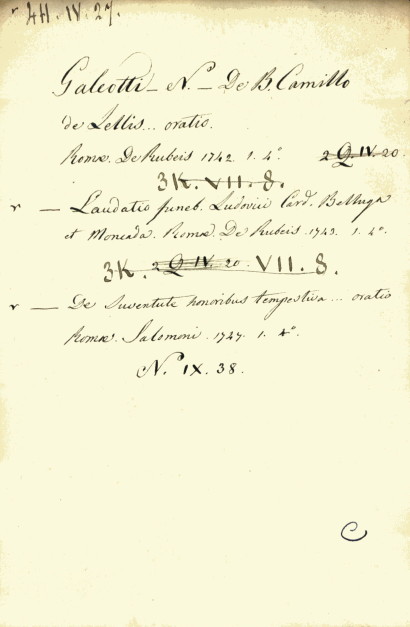 r 4H. IV. 27.
Galeotti - N.º - De B. Camillo
de Lellis... oratio.
Romæ. De Rubeis 1742. 1. 4º 2 Q. IV. 20.
3K. VII. 8.
r — Laudatio funeb. Ludovici Card. Belluga
et Moncada. Romæ. De Rubeis. 1743. 1. 4º.
3K. 2 Q IV 20 VII. 8.
r — De Juventute honoribus tempestiva ... oratio
Romæ. Salomoni. 1747. 1. 4º
N.º IX. 38.
C